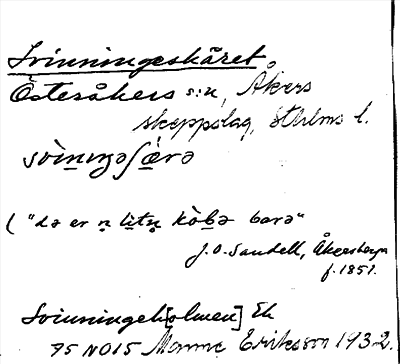 Svinningeskäret
Österåkers s:n, Åkers
skeppslag, Sthlms l.
svìnıŋəʃæ̀rə
( "də er n̥ lìtn̥ kòbə barə"
J.O. Sandell, Åkersberga
f. 1851.
Svinningeh[olmen] Ek
75 NO15 Manne Eriksson 1932.